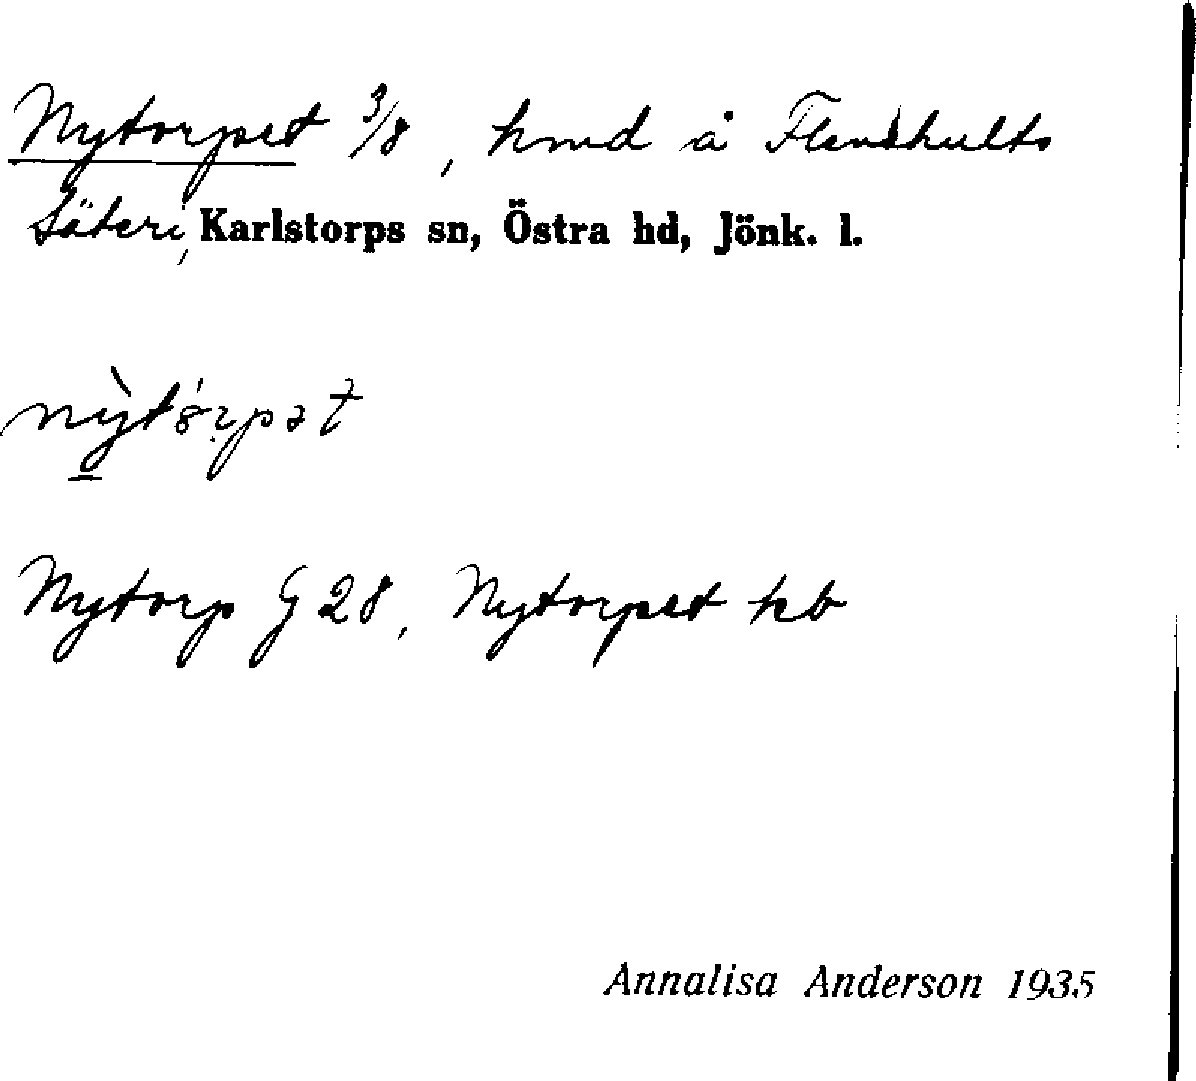 Nytorpet 3/8, hmd å Flenshults
Säteri, Karlstorps sn, Östra hd, Jönk. l.
nỳtórpət
Nytorp G 28, Nytorpet hb
Annalisa Anderson 1935